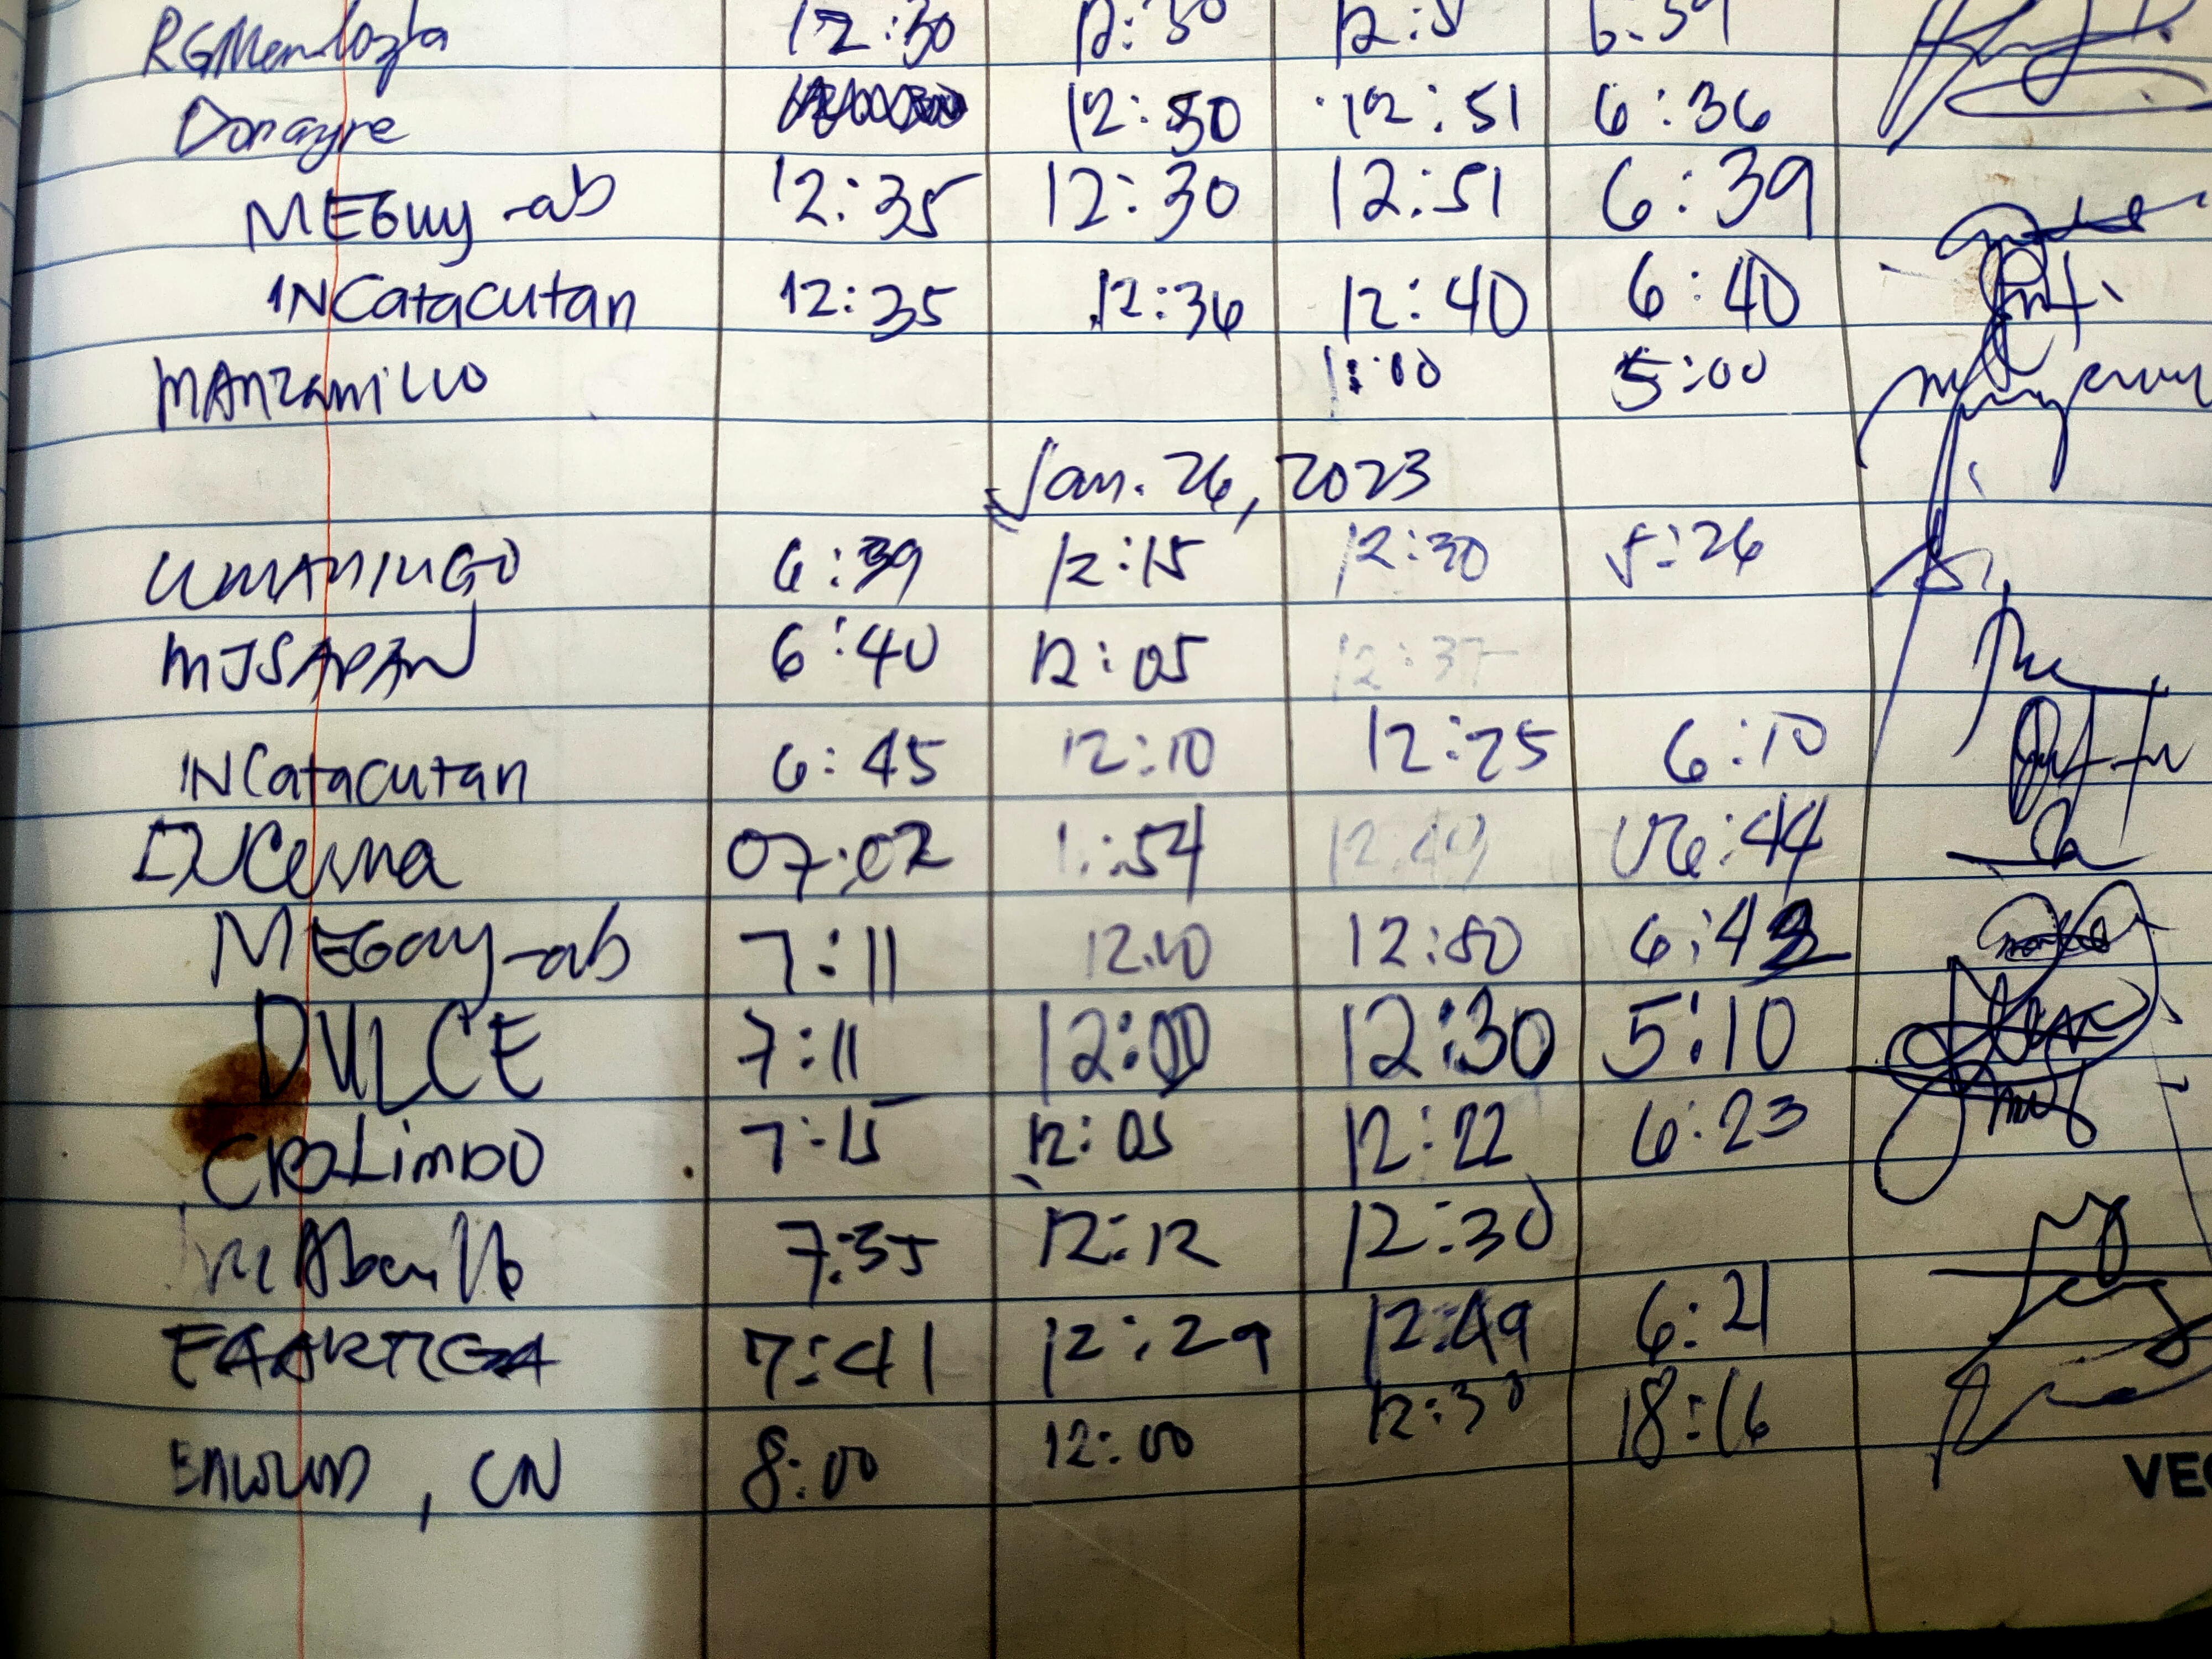 12:30 12:30 12:5 6:39
Donayre 12:30 12:51 6:36
MEGuy-ab 12:35 12:30 12:51 6:39
INCatacutan 12:35 12:36 12:40 6:40
MANzaniLLO 1:00 5:00
Jan. 26, 2023
UMANINGO 6:39 12:15 12:30 5:26
MJSAPAN 6:40 12:05 12:37
INCatacutan 6:45 12:10 12:25 6:10
07:02 11:54 12:49 06:44
MEGuy-ab 7:11 12:10 12:50 6:42
DULCE 7:11 12:00 12:30 5:10
7:15 12:05 12:22 6:23
7:35 12:12 12:30
EAARTIGA 7:41 12:29 12:49 6:21
, CN 8:00 12:00 12:30 18:16